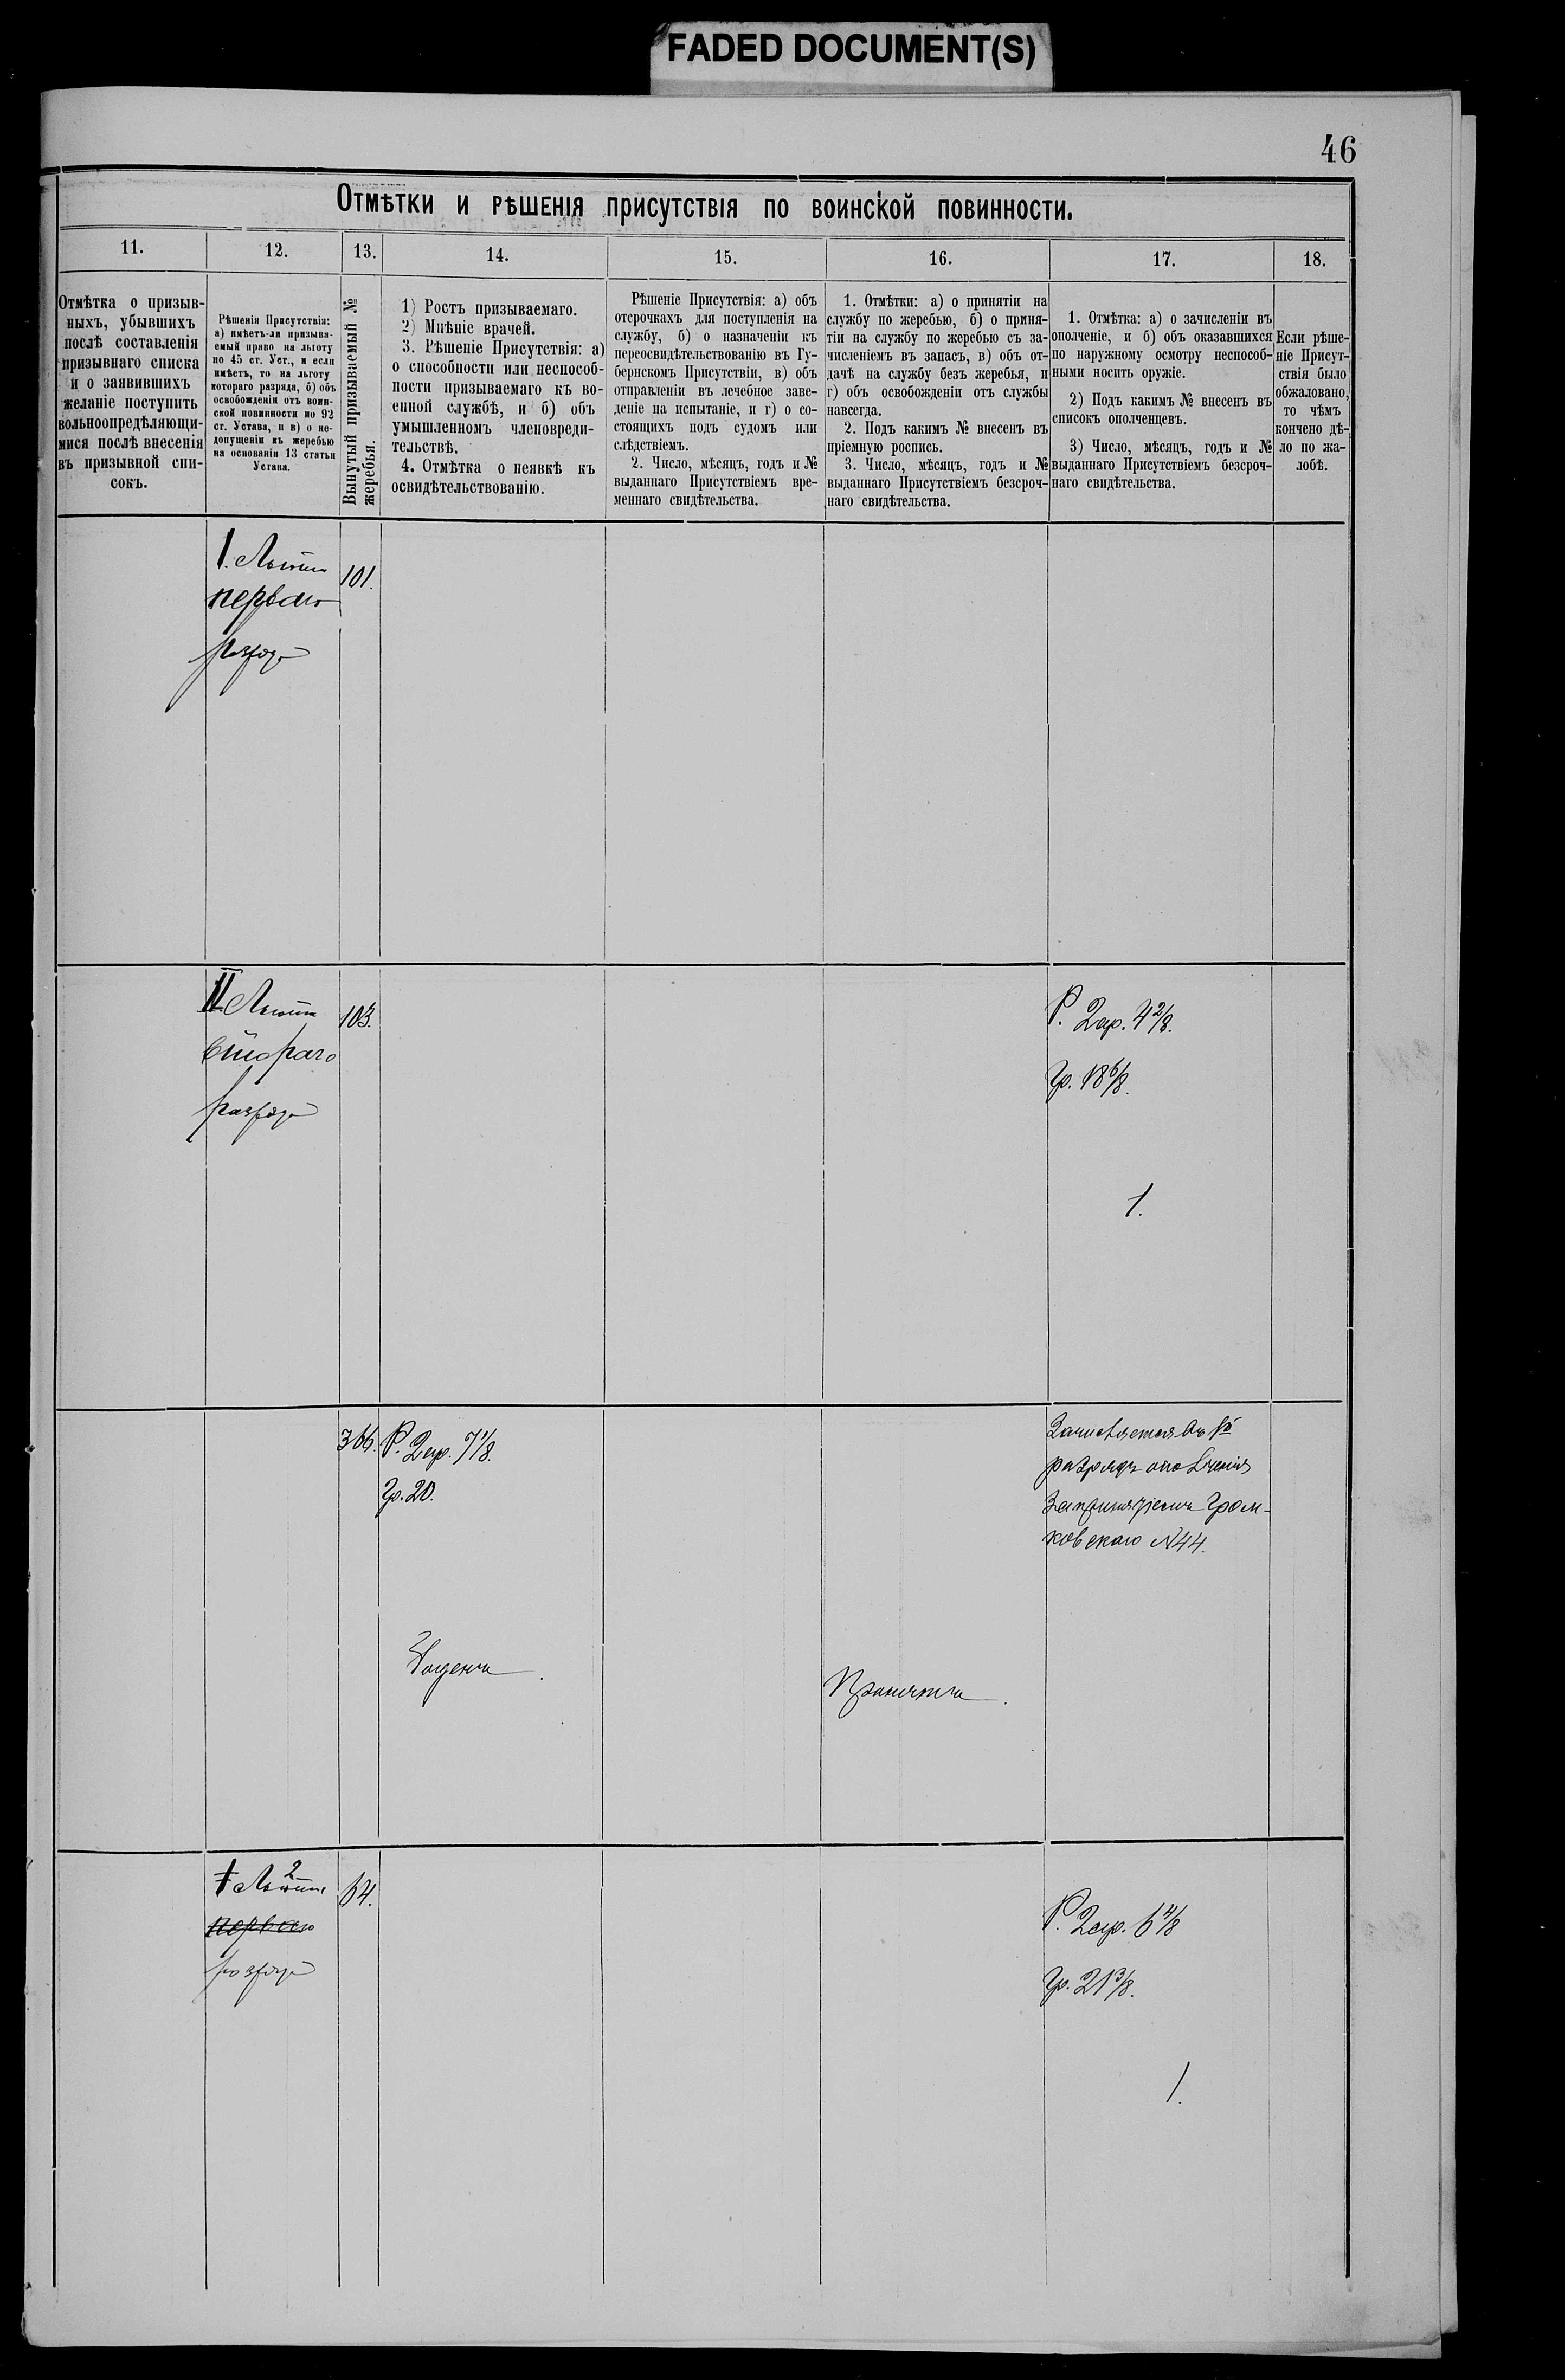 FADED DOCUMENT(S)
46
Отмѣтки и рѣшенія присутствія по воинской повинности.
11.
12.
13.
14.
15.
16.
17.
18.
Отмѣтка о призыв-
ныхъ, убывшихъ
послѣ составленія
призывнаго списка
и о заявившихъ
желаніе поступить
вольноопредѣляющи-
мися послѣ внесенія
въ призывной спи-
сокъ.
Рѣшенія Присутствія:
а) имѣетъ-ли призыва-
емый право на льготу
по 45 ст. Уст., и если
имѣетъ, то на льготу
котораго разряда, б) объ
освобожденіи отъ воин-
ской повинности по 92
ст. Устава, и в) о не-
допущеніи къ жеребью
на основаніи 13 статьи
Устава.
Вынутый призываемый №
жеребья.
1) Ростъ призываемаго.
2) Мнѣніе врачей.
3. Рѣшеніе Присутствія: а)
о способности или неспособ-
ности призываемаго къ во-
енной службѣ, и б) объ
умышленномъ членовреди-
тельствѣ.
4. Отмѣтка о неявкѣ къ
освидѣтельствованію.
Рѣшеніе Присутствія: а) объ
отсрочкахъ для поступленія на
службу, б) о назначеніи къ
переосвидѣтельствованію въ Гу-
бернскомъ Присутствіи, в) объ
отправленіи въ лечебное заве-
деніе на испытаніе, и г) о со-
стоящихъ подъ судомъ или
слѣдствіемъ.
2. Число, мѣсяцъ, годъ и №
выданнаго Присутствіемъ вре-
меннаго свидѣтельства.
1. Отмѣтки: а) о принятіи на
службу по жеребью, б) о приня-
тіи на службу по жеребью съ за-
численіемъ въ запасъ, в) объ от-
дачѣ на службу безъ жеребья, и
г) объ освобожденіи отъ службы
навсегда.
2. Подъ какимъ № внесенъ въ
пріемную роспись.
3. Число, мѣсяцъ, годъ и №
выданнаго Присутствіемъ безсроч-
наго свидѣтельства.
1. Отмѣтка: а) о зачисленіи въ
ополченіе, и б) объ оказавшихся
по наружному осмотру неспособ-
ными носить оружіе.
2) Подъ какимъ № внесенъ въ
списокъ ополченцевъ.
3) Число, мѣсяцъ, годъ и №
выданнаго Присутствіемъ безсроч-
наго свидѣтельства.
Если рѣше-
ніе Присут-
ствія было
обжаловано,
то чѣмъ
кончено дѣ-
ло по жа-
лобѣ.
1. Льготы
перваго
разряда
101.
II Льготы
втораго
разряда
103.
Р. 2ар. 4 2/8.
Гр. 18 6/8.
1.
366.
Р. 2ар. 7 1/8.
Гр. 20.
Годенъ.
Принятъ.
Зачисляется въ 1й
разрядъ ополченія
за принятіемъ Гром-
ковскаго N 44.
1 Льготы 2
перваго
разряда
64.
Р. 2ар. 6 4/8
Гр. 21 3/8.
1.